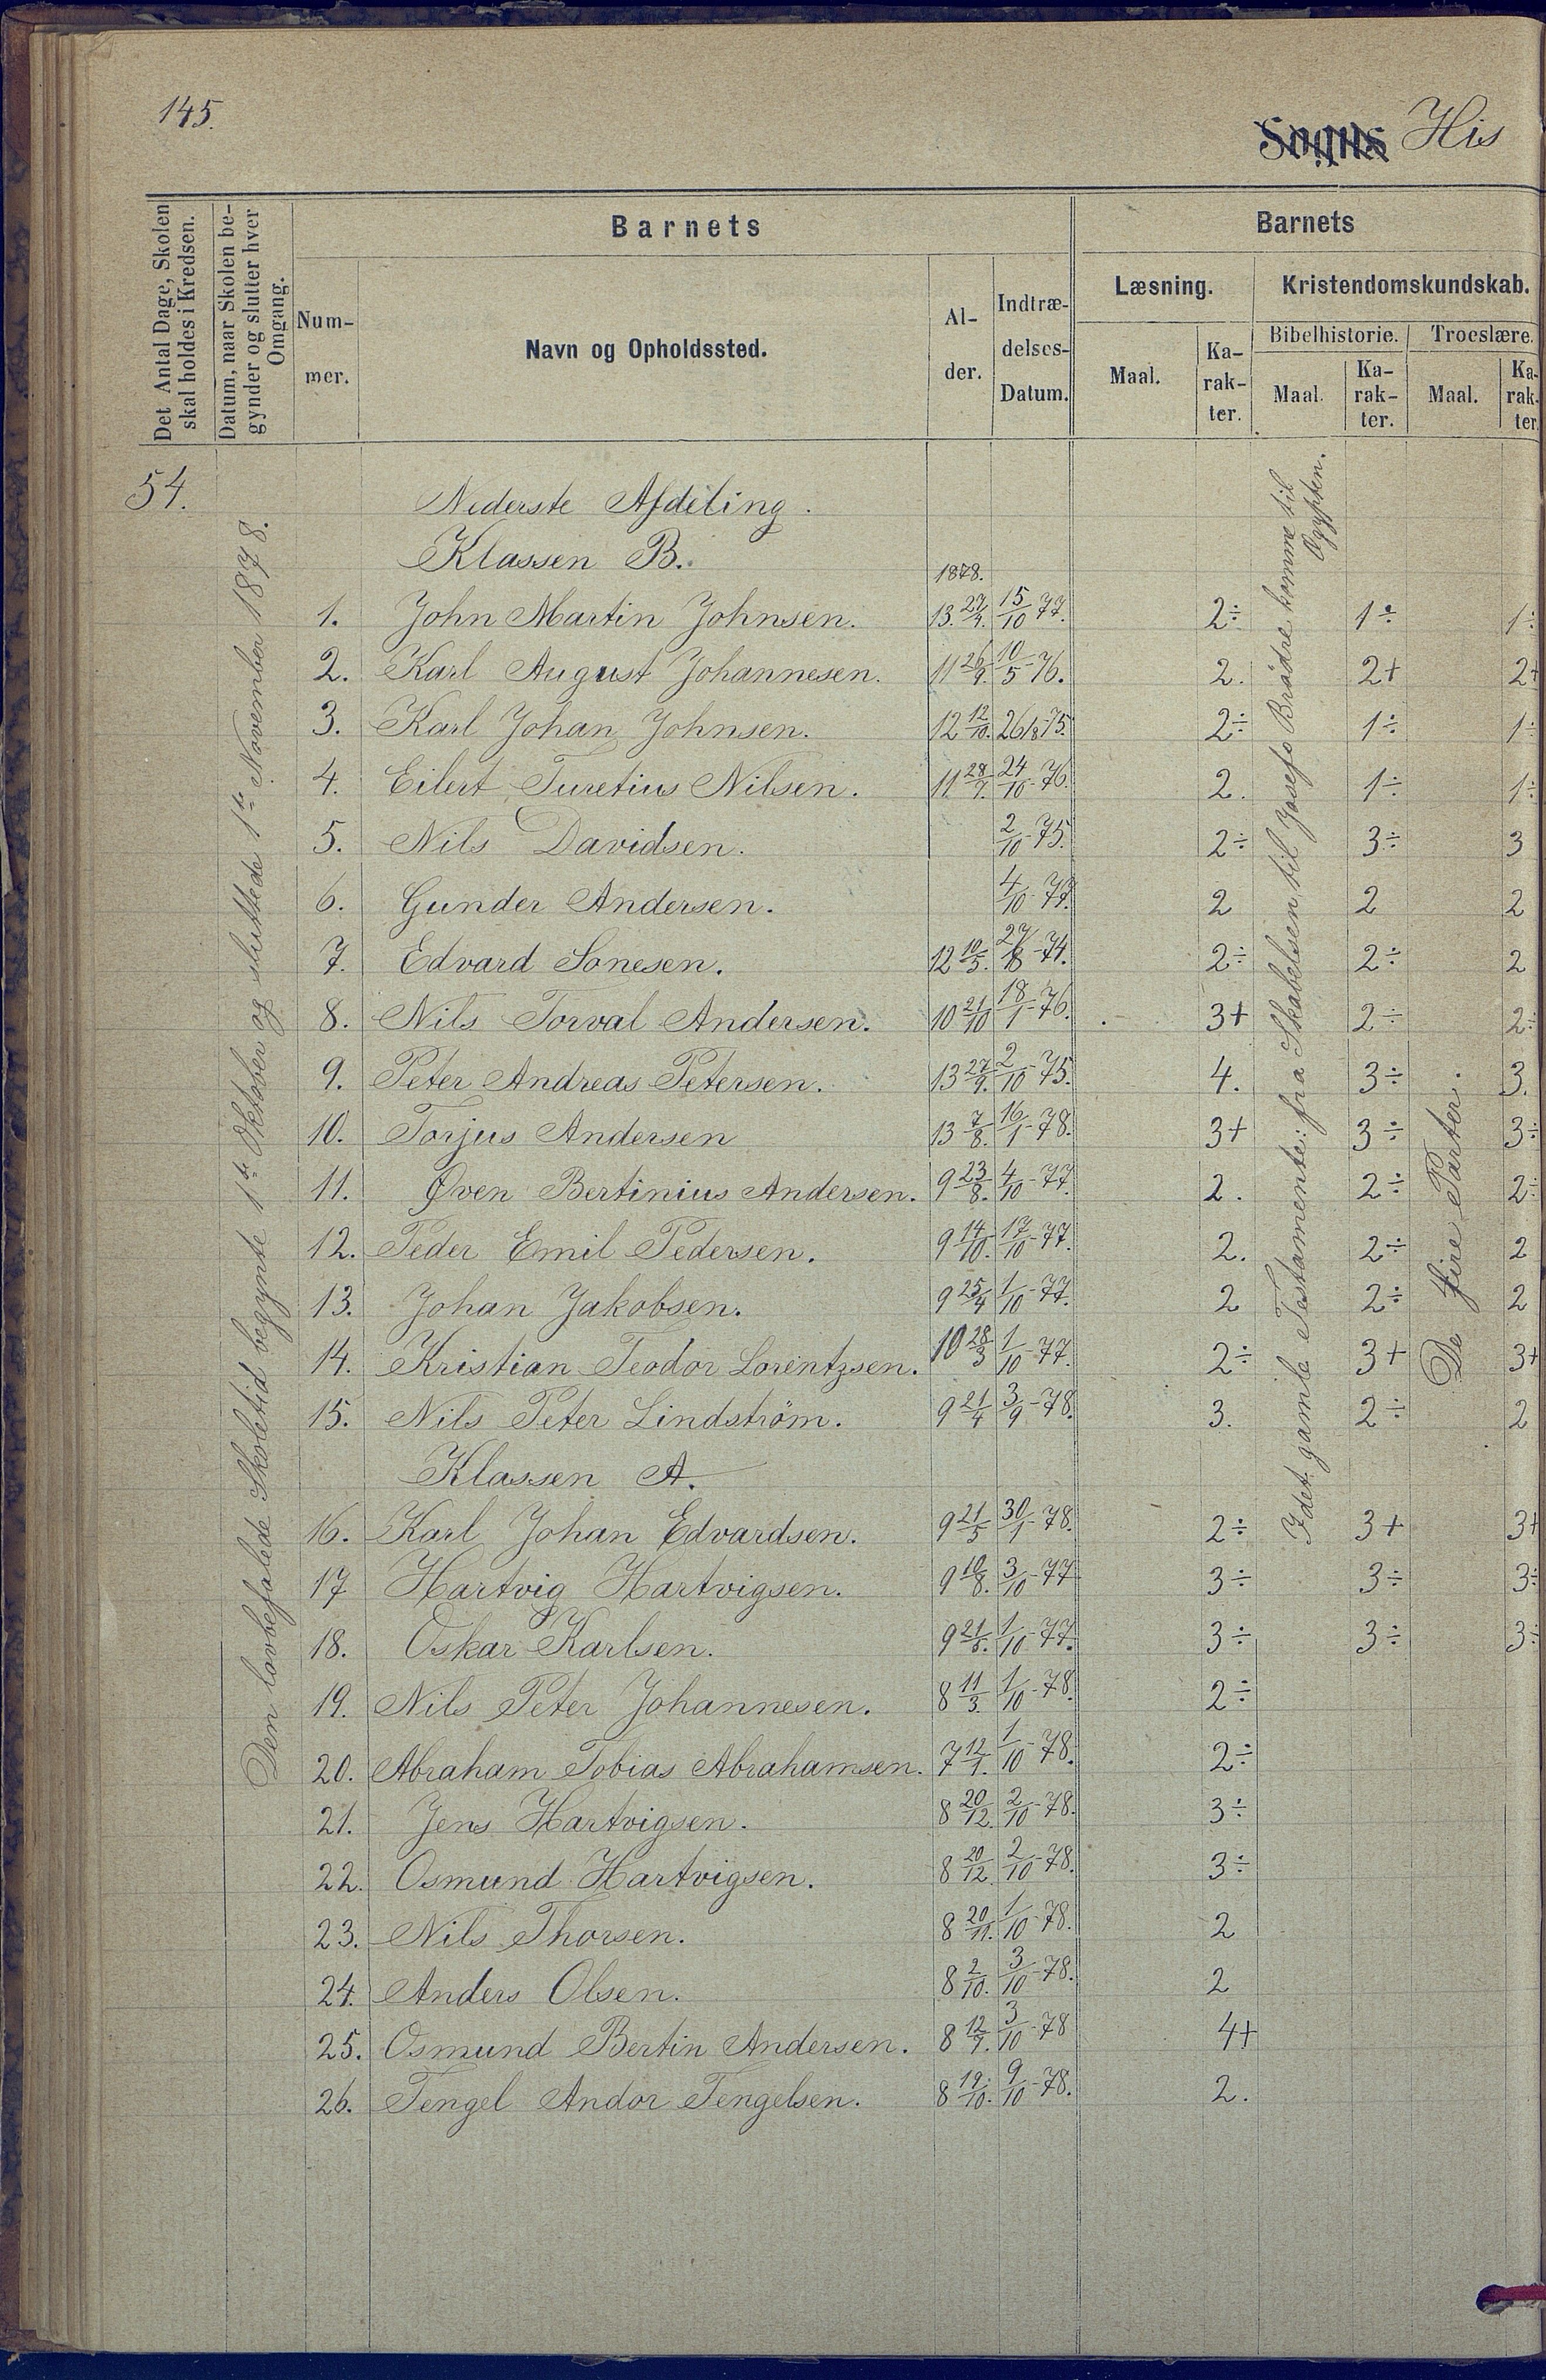 145.
Sogns His
Det Antal Dage, Skolen skal holdes i Kredsen.
Datum, naar Skolen begynder og slutter hver Omgang.
Barnets
Num-
mer.
Navn og Opholdssted.
Al-
der.
Indtræ-
delses-
Datum.
Barnets
Læsning.
Maal.
Ka-
rak-
ter.
Kristendomskundskab.
Bibelhistorie.
Maal.
Ka-
rak-
ter.
Troeslære.
Maal.
Ka-
rak-
ter.
54.
Den lovbefalede Skoletid begynte 1ste Oktober og sluttede 1ste November 1878.
Nederste Afdeling.
Klassen B.
1878.
1. John Martin Johnsen. 13. 27/4. 15/10 77. 2÷ 1÷ 1÷
2. Karl August Johannesen. 11 26/9. 10/5-76. 2. 2+ 2+
3. Karl Johan Johnsen. 12 12/10. 26/8-75. 2÷ 1÷ 1÷
4. Eilert Turetius Nilsen. 11 28/7. 24/10-76. 2. 1÷ 1÷
5. Nils Davidsen. 2/10-75. 2÷ 3÷ 3
6. Gunder Andersen. 4/10-77. 2 2 2
7. Edvard Sonesen. 12 10/5. 27/8-74. 2÷ 2÷ 2
8. Nils Torval Andersen. 10 21/10 18/1-76. 3+ 2÷ 2÷
9. Peter Andreas Petersen. 13 27/9. 2/10-75. 4. 3÷ 3.
10. Torjus Andersen 13 7/8. 16/1-78. 3+ 3÷ 3÷
11. Øven Bertinius Andersen. 9 23/8. 4/10-77. 2. 2÷ 2÷
12. Peder Emil Pedersen. 9 14/10. 17/10-77. 2. 2÷ 2
13. Johan Jakobsen. 9 25/4 1/10-77. 2 2÷ 2
14. Kristian Teodor Lorentzsen. 10 28/3 1/10-77. 2÷ 3+ 3+
15. Nils Peter Lindström. 9 21/4 3/9-78. 3. 2÷ 2
Klassen A.
16. Karl Johan Edvardsen. 9 21/5 30/1-78. 2÷ 3+ 3+
17 Hartvig Hartvigsen. 9 10/8. 3/10-77 3÷ 3÷ 3÷
18. Oskar Karlsen. 9 21/5. 1/10-77. 3÷ 3÷ 3÷
19. Nils Peter Johannesen. 8 11/3. 1/10-78. 2÷
20. Abraham Tobias Abrahamsen. 7 12/1. 1/10-78. 2÷
21. Jens Hartvigsen. 8 20/12. 2/10-78. 3÷
22. Osmund Hartvigsen. 8 20/12. 2/10-78. 3÷
23. Nils Thorsen. 8 20/11. 1/10-78. 2
24. Anders Olsen. 8 2/10. 3/10-78. 2
25. Osmund Bertin Andersen. 8 12/7. 3/10-78 4+
26. Tengel Andor Tengelsen. 8 19/10. 9/10-78. 2.
I det gamle Testamente: fra Skabelsen til Josefs Brødre komme til
Ægypten.
De fire Parter.